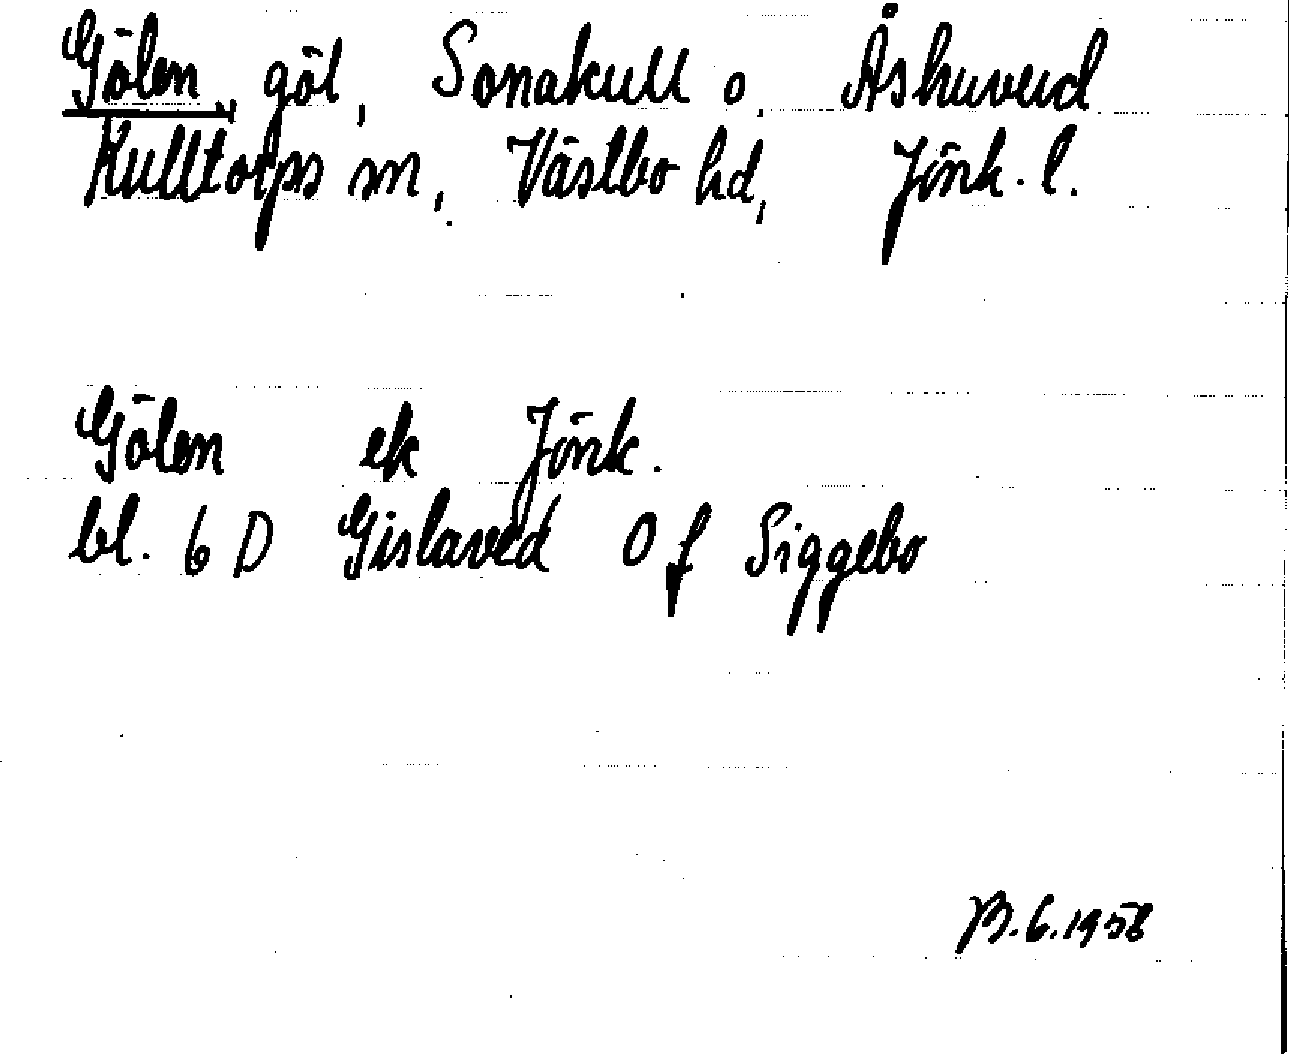 Gölen, göl, Sonakull o. Åshuvud
Kulltorps sn, Västbo hd, Jönk. l.
Gölen ek Jönk.
bl. 6 D Gislaved 0 f Siggebo
B. 6. 1958